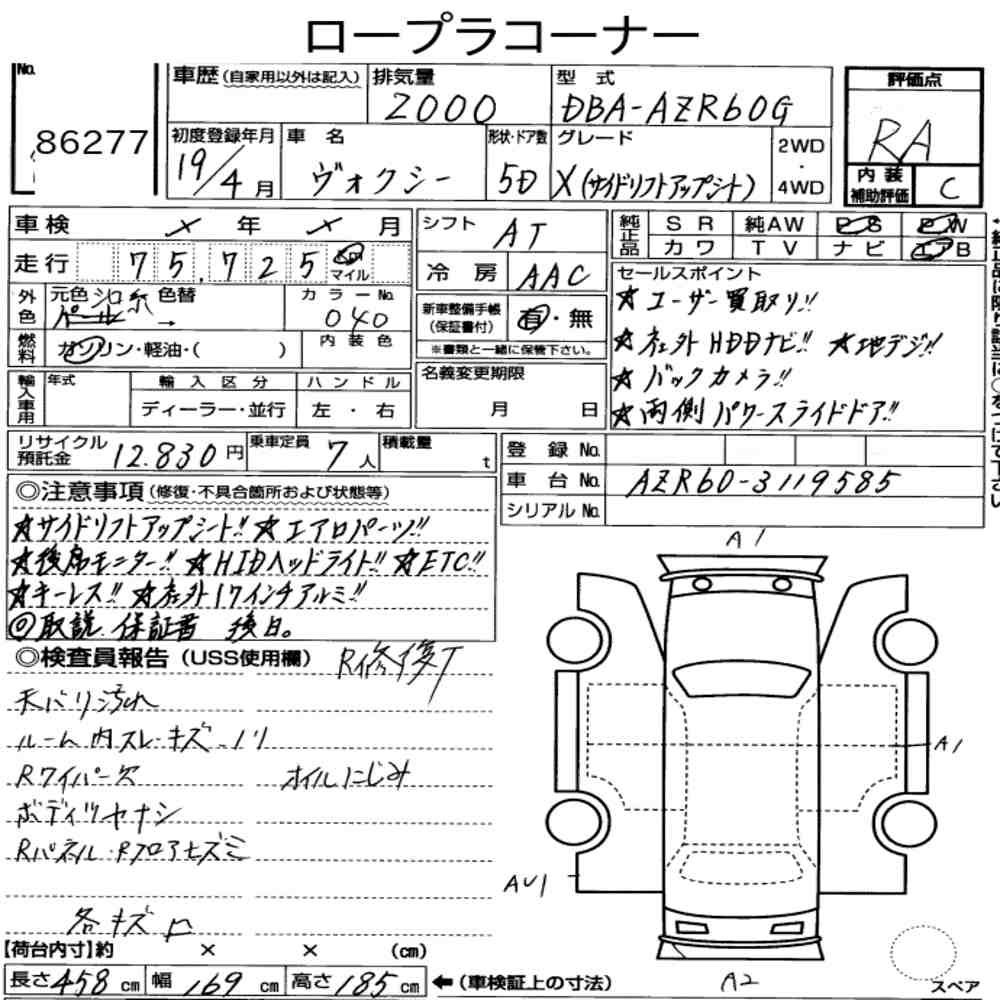 ロープラコーナー
No. 86277
車歴(自家用以外は記入) 排気量 2000 型式 DBA-AZR60G
評価点 RA
初度登録年月 19/4月 車名 ヴォクシー 形状・ドア数 5D グレード X(サイドリフトアップシート) 2WD・4WD
内装補助評価 C
車検 メ年 メ月 シフト AT 純正品 SR 純AW PS PW
カワ TV ナビ エアB
走行 75,725 km マイル 冷房 AAC
外色 元色 パール 色替 → カラーNo. 040
燃料 ガソリン・軽油・( ) 内装色
新車整備手帳(保証書付) 有・無
※書類と一緒に保管下さい。
セールスポイント
★ユーザー買取り!!
★社外HDDナビ!! ★地デジ!!
★バックカメラ!!
★両側パワースライドドア!!
輸入車用 年式 輸入区分 ハンドル
ディーラー・並行 左・右
名義変更期限
月 日
リサイクル預託金 12.830円 乗車定員 7人 積載量 t
登録No.
車台No. AZR60-3119585
シリアルNo.
◎注意事項(修復・不具合箇所および状態等)
★サイドリフトアップシート!! ★エアロパーツ!!
★後席モニター!! ★HIDヘッドライト!! ★ETC!!
★キーレス!! ★社外17インチアルミ!!
◎取説 保証書 後日。
◎検査員報告(USS使用欄) R修復
汚れ
ルーム内スレ・キズ・ノリ
Rワイパー欠 オイルにじみ
ボディ
Rパネル・Rフロアヒズミ
各キズ
【荷台内寸】約 × × (cm)
長さ458cm 幅169cm 高さ185cm ←(車検証上の寸法)
A1
A1
AU1
A2
スペア